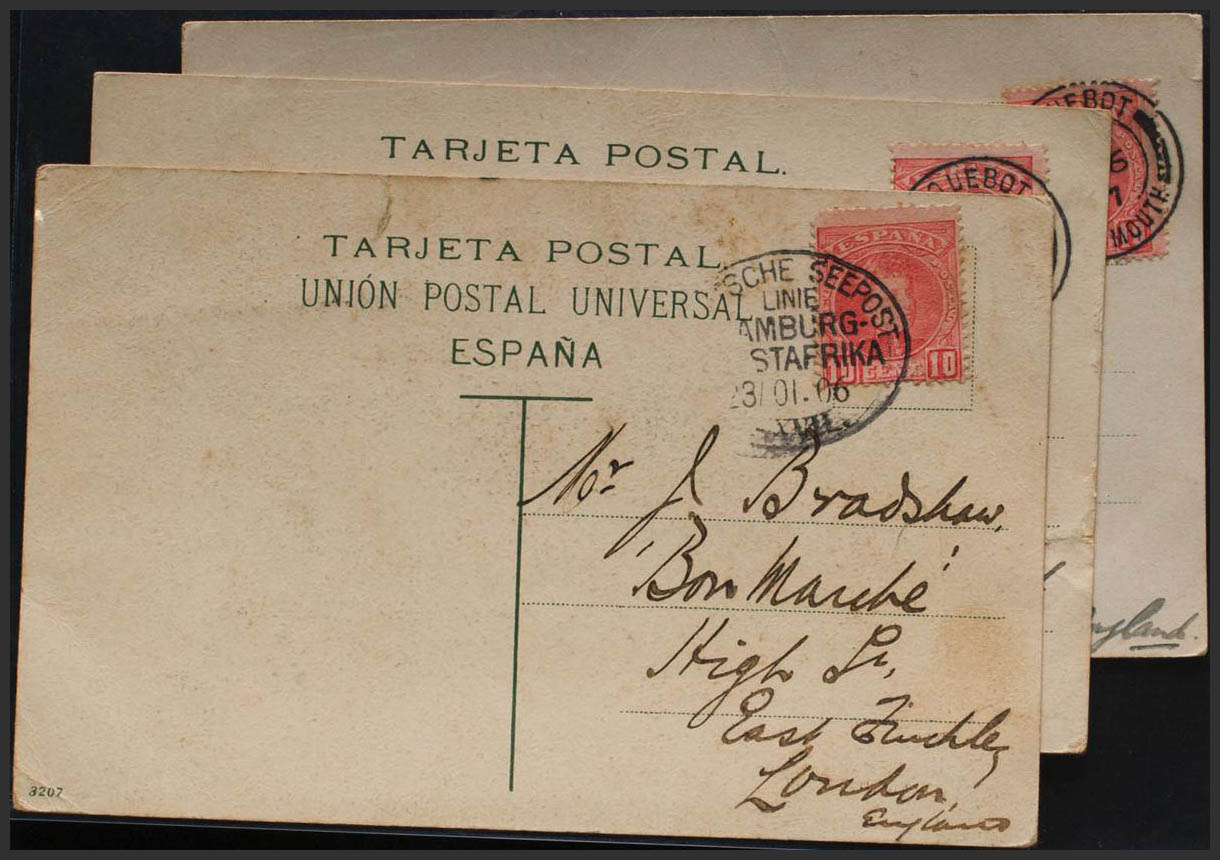 QUEBOT
MOUTH
England.
TARJETA POSTAL.
QUEBOT
TARJETA POSTAL
UNIÓN POSTAL UNIVERSAL
ESPAÑA
ESPAÑA
10 CENTS 10
SCHE SEEPOST
LINIE
AMBURG-
STAFRIKA
23/01.06
XVIII.
Mr J Bradshaw,
'Bon Marché'
High St,
East Finchley
London,
England
3207